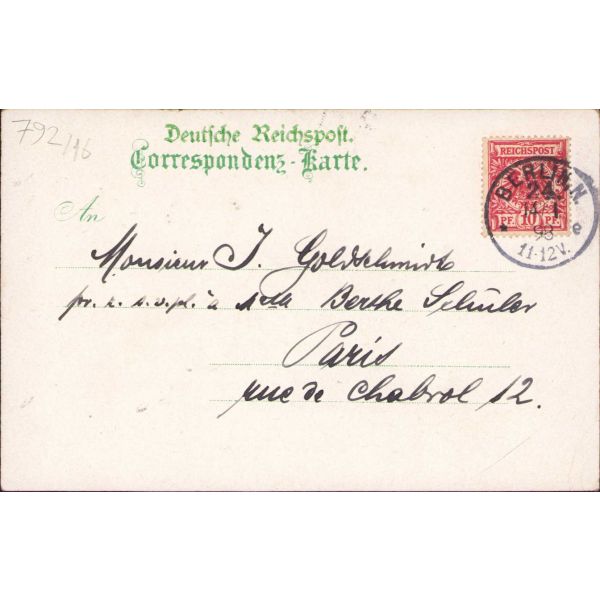 792/16
Deutsche Reichspost.
Correspondenz-Karte.
REICHSPOST
PF. 10 PF.
BERLIN N.
24
14 1
98
11-12V.
e
An
Monsieur J. Goldschmidt
pr. r. s.v.pl. à Mlle Berthe Schüler
Paris
rue de Chabrol 12.